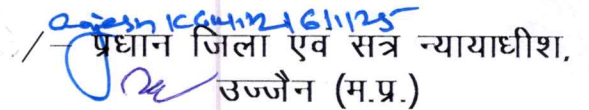 16/1/25
./- प्रधान जिला एवं सत्र न्यायाधीश,
उज्जैन (म.प्र.)